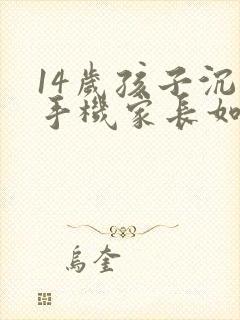 14歲孩子沉
手機家長如
烏奎